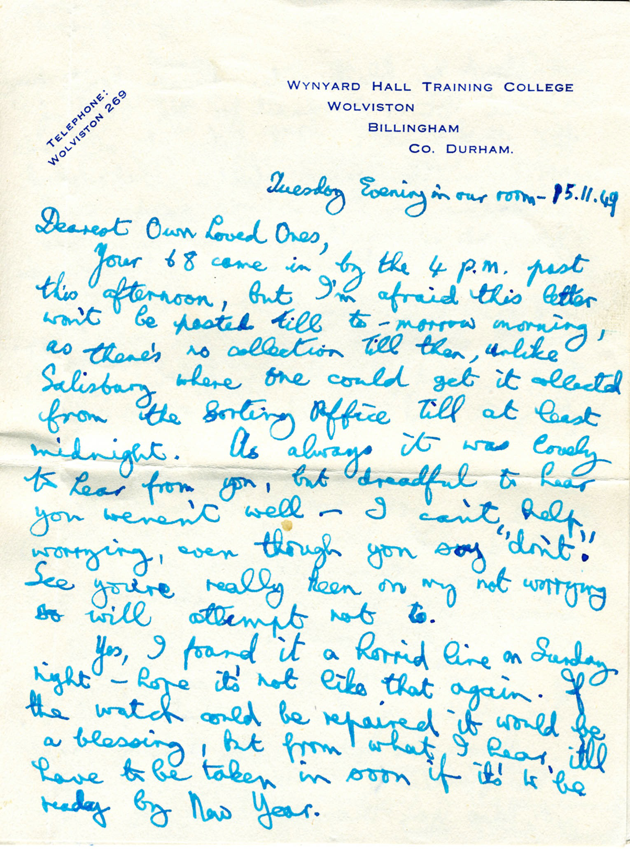 TELEPHONE:
WOLVISTON 269
WYNYARD HALL TRAINING COLLEGE
WOLVISTON
BILLINGHAM
CO. DURHAM.
Tuesday Evening in our room – 15.11.49
Dearest Own Loved Ones,
Your 68 came in by the 4 p.m. post
this afternoon, but I'm afraid this letter
won't be posted till to-morrow morning,
as there's no collection till then, unlike
Salisbury where one could get it collected
from the Sorting Office till at least
midnight. As always it was lovely
to hear from you, but dreadful to hear
you weren't well – I can't help
worrying, even though you say "don't".
See you're really keen on my not worrying
so will attempt not to.
Yes, I found it a horrid line on Sunday
night – hope it's not like that again. If
the watch could be repaired it would be
a blessing, but from what I hear, it'll
have to be taken in soon if it's to be
ready by New Year.